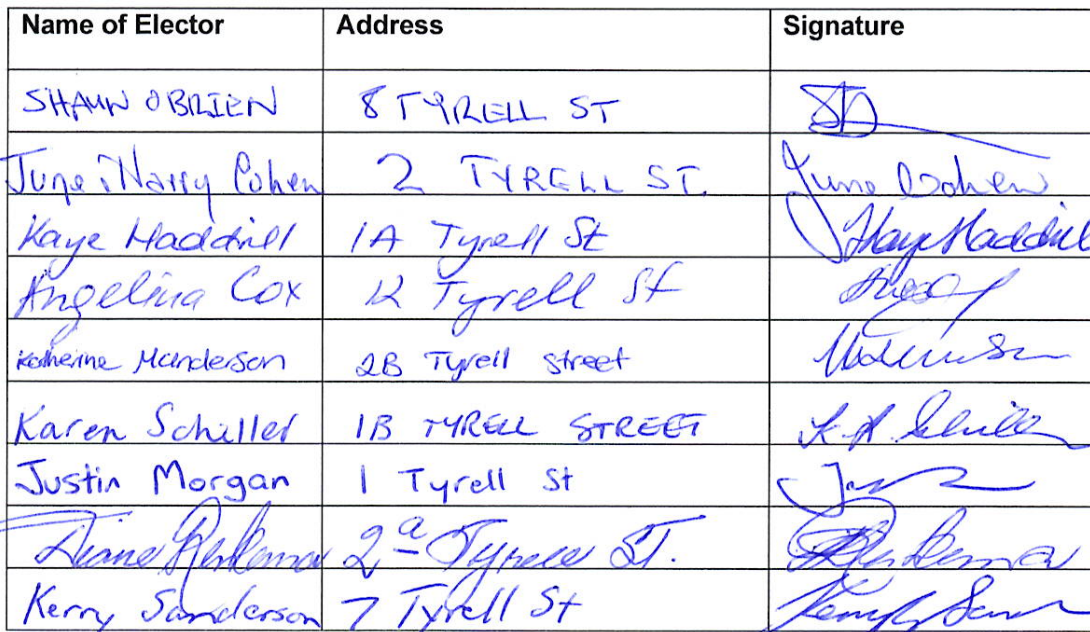 Name of Elector Address Signature
SHAUN OBRIEN 8 TYRELL ST
June & Harry Cohen 2 TYRELL ST. June Cohen
Kaye Haddrill 1A Tyrell St Kaye Haddrill
Angelina Cox 12 Tyrell St
Katherine Manderson 2B Tyrell Street
Karen Schiller 1B TYRELL STREET K A Schiller
Justin Morgan 1 Tyrell St
Diane 2a Tyrell ST.
Kerry Sanderson 7 Tyrell St